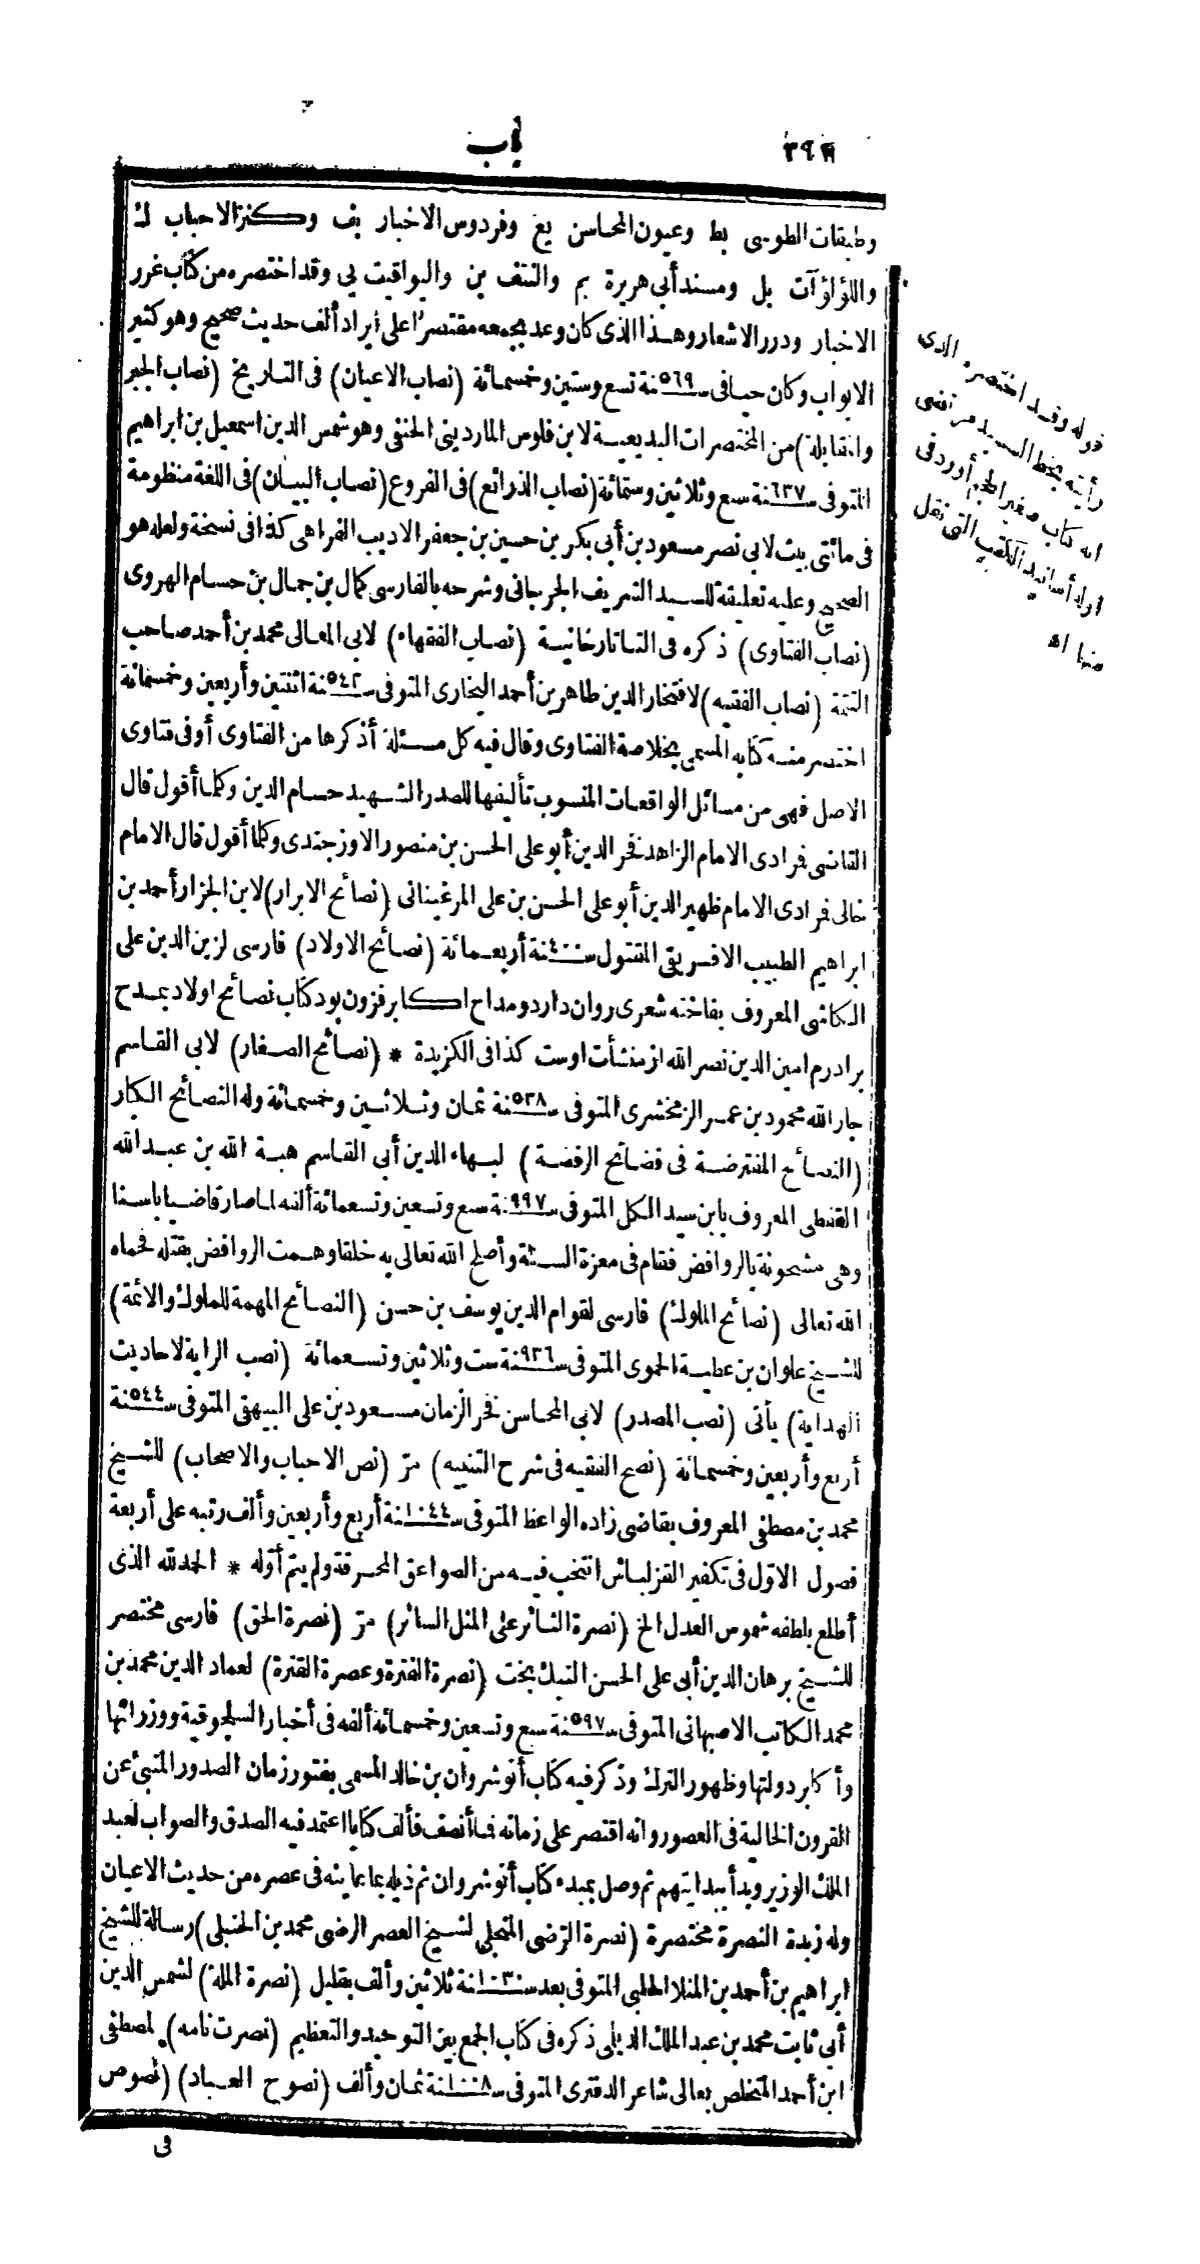 ٣٩٨
باب
وطبقات الطوسى بط وعيون المحاسن يغ وفردوس الاخبار بف وكنز الاحباب لـ
واللؤلؤآت بل ومسند أبى هريرة بم والنتف ين واليواقيت يى وقد اختصره من كتاب غرر
الاخبار ودرر الاشعار وهذا الذى كان وعد بجمعه مقتصرا على ايراد ألف حديث صحيح وهو كثير
الابواب وكان حيا فى سنة ٥٦٩ تسع وستين وخمسمائة (نصاب الاعيان) فى التاريخ (نصاب الجبر
والمقابلة) من المختصرات البديعية لابن فلوس الماردينى الحنفى وهو شمس الدين اسمعيل بن ابراهيم
المتوفى سنة ٦٣٧ سبع وثلاثين وستمائة (نصاب الذرائع) فى الفروع (نصاب البيان) فى اللغة منظومة
فى مائتى بيت لابى نصر مسعود بن أبى بكر بن حسين بن جعفر الاديب الفراهى كذا فى نسخة ولعله هو
الصحيح وعليه تعليقة للسيد الشريف الجرجانى وشرحه بالفارسى كمال بن جمال بن حسام الهروى
(نصاب الفتاوى) ذكره فى التاتارخانية (نصاب الفقهاء) لابى المعالى محمد بن أحمد صاحب
التتمة (نصاب الفقيه) لافتخار الدين طاهر بن أحمد البخارى المتوفى سنة ٥٤٢ اثنتين وأربعين وخمسمائة
اختصر منه كتابه المسمى بخلاصة الفتاوى وقال فيه كل مسئلة أذكرها من الفتاوى أو فى فتاوى
الاصل فهى من مسائل الواقعات المنسوب تأليفها للصدر الشهيد حسام الدين وكلما أقول قال
القاضى فمرادى الامام الزاهد فخر الدين أبو على الحسن بن منصور الاوزجندى وكلما أقول قال الامام
خالى فمرادى الامام ظهير الدين أبو على الحسن بن على المرغينانى (نصائح الابرار) لابن الجزار أحمد بن
ابراهيم الطبيب الافريقى المقتول سنة ٤٠٠ أربعمائة (نصائح الاولاد) فارسى لزين الدين على
الكاشى المعروف بفاخته شعرى روان دارد ومداح اكابر قزون بود كتاب نصائح اولاد بمدح
برادرم امين الدين نصر الله از منشأت اوست كذا فى الكزيدة * (نصائح الصغار) لابى القاسم
جار الله محمود بن عمر الزمخشرى المتوفى سنة ٥٣٨ ثمان وثلاثين وخمسمائة وله النصائح الكبار
(النصائح المفترضة فى فضائح الرفضة) لبهاء الدين أبى القاسم هبة الله بن عبد الله
القفطى المعروف بابن سيد الكل المتوفى سنة ٩٩٧ سبع وتسعين وتسعمائة ألفه لما صار قاضيا باسنا
وهى مشحونة بالروافض فقام فى معزة السنة وأصلح الله تعالى به خلقا وهمت الروافض بقتله فحماه
الله تعالى (نصائح الملوك) فارسى لقوام الدين يوسف بن حسن (النصائح المهمة للملوك والائمة)
للشيخ علوان بن عطية الحموى المتوفى سنة ٩٣٦ ست وثلاثين وتسعمائة (نصب الراية لاحاديث
الهداية) يأتى (نصب المصدر) لابى المحاسن فخر الزمان مسعود بن على البيهقى المتوفى سنة ٥٤٤
أربع وأربعين وخمسمائة (نصح الفقيه فى شرح التنبيه) مرّ (نص الاحباب والاصحاب) للشيخ
محمد بن مصطفى المعروف بقاضى زاده الواعظ المتوفى سنة ١٠٤٤ أربع وأربعين وألف رتبه على أربعة
فصول الاوّل فى تكفير القزلباش انتخب فيه من الصواعق المحرقة ولم يتم أوّله * الحمد لله الذى
أطلع بلطفه شموس العدل الخ (نصرة الثائر على المثل السائر) مرّ (نصرة الحق) فارسى مختصر
للشيخ برهان الدين أبى على الحسن النيك بخت (نصرة الفترة وعصرة القترة) لعماد الدين محمد بن
محمد الكاتب الاصبهانى المتوفى سنة ٥٩٧ سبع وتسعين وخمسمائة ألفه فى أخبار السلجوقية ووزرائها
وأكابر دولتها وظهور الترك وذكر فيه كتاب أنوشروان بن خالد المسمى بفتور زمان الصدور المنبئ عن
القرون الخالية فى العصور وانه اقتصر على زمانه فما أنصف فألف كتابا اعتمد فيه الصدق والصواب لعبد
الملك الوزير وبدأ ببدايتهم ثم وصل بمبدء كتاب أنوشروان ثم ذيله بما عاينه فى عصره من حديث الاعيان
وله زبدة النصرة مختصرة (نصرة الرضى المتجلى لشيخ العصر الرضى محمد بن الحنبلى) رسالة للشيخ
ابراهيم بن أحمد بن المنلا الحلبى المتوفى بعد سنة ١٠٣٠ ثلاثين وألف بقليل (نصرة الملة) لشمس الدين
أبى ثابت محمد بن عبد الملك الديلى ذكره فى كتاب الجمع بين التوحيد والتعظيم (نصرت نامه) لمصطفى
ابن أحمد المتخلص بعالى شاعر الدفترى المتوفى سنة ١٠٠٨ ثمان وألف (نصوح العباد) (نصوص
فى
قوله وقد اختصره الذى
رأيته بخط السيد مرتضى
انه كتاب صغير الحجم أورد فى
أوله أسانيد الكتب التى نقل
منها اه